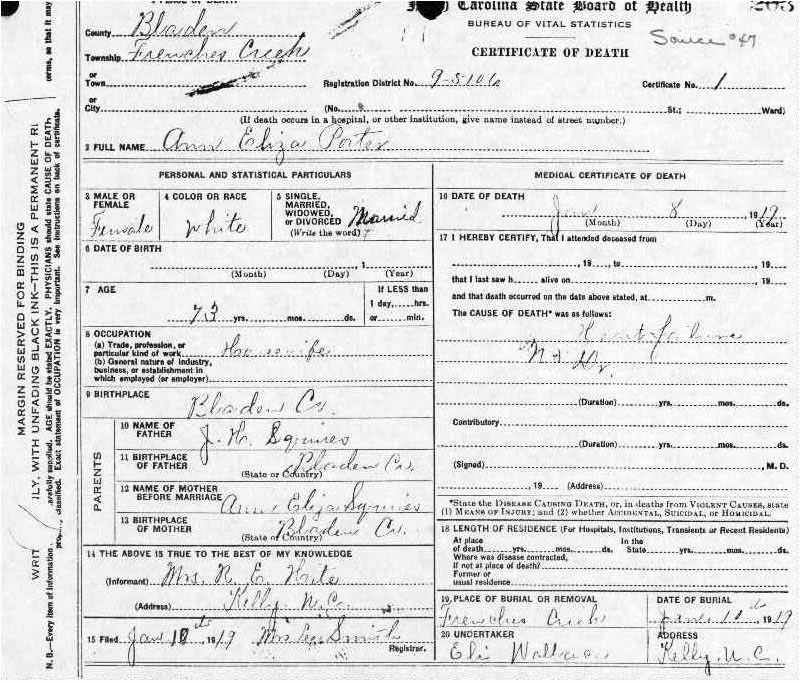 PLACE OF DEATH
North Carolina State Board of Health
BUREAU OF VITAL STATISTICS
CERTIFICATE OF DEATH
Source #47
County Bladen
Township Frenches Creek
or
Town
Registration District No. 9-5106
Certificate No. 1
or
City (No. St.; Ward)
(If death occurs in a hospital, or other institution, give name instead of street number.)
2 FULL NAME Ann Eliza Porter
PERSONAL AND STATISTICAL PARTICULARS
3 MALE OR FEMALE Female
4 COLOR OR RACE White
5 SINGLE, MARRIED, WIDOWED, OR DIVORCED (Write the word) Married
6 DATE OF BIRTH
, 1
(Month) (Day) (Year)
7 AGE
73 yrs. mos. ds.
If LESS than
1 day, hrs.
or min.
8 OCCUPATION
(a) Trade, profession, or
particular kind of work Housewife
(b) General nature of industry,
business, or establishment in
which employed (or employer)
9 BIRTHPLACE
Bladen Co.
PARENTS
10 NAME OF FATHER J. H. Squires
11 BIRTHPLACE OF FATHER (State or Country) Bladen Co.
12 NAME OF MOTHER BEFORE MARRIAGE Ann Eliza Squires
13 BIRTHPLACE OF MOTHER (State or Country) Bladen Co.
14 THE ABOVE IS TRUE TO THE BEST OF MY KNOWLEDGE
(Informant) Mrs. R. E.
(Address) Kelly N.C.
15 Filed Jan 10th 1919 Mrs Smith
Registrar.
MEDICAL CERTIFICATE OF DEATH
16 DATE OF DEATH
Jan 8, 1919
(Month) (Day) (Year)
17 I HEREBY CERTIFY, That I attended deceased from
, 19 , to , 19
that I last saw h alive on , 19
and that death occurred on the date above stated, at m.
The CAUSE OF DEATH* was as follows:
Heart failure
No Dr.
(Duration) yrs. mos. ds.
Contributory
(Duration) yrs. mos. ds.
(Signed) , M. D.
, 19 (Address)
*State the DISEASE CAUSING DEATH, or, in deaths from VIOLENT CAUSES, state
(1) MEANS OF INJURY; and (2) whether ACCIDENTAL, SUICIDAL, or HOMICIDAL.
18 LENGTH OF RESIDENCE (For Hospitals, Institutions, Transients or Recent Residents)
At place of death yrs. mos. ds. In the State yrs. mos. ds.
Where was disease contracted,
If not at place of death?
Former or
usual residence
19 PLACE OF BURIAL OR REMOVAL
Frenches Creek
DATE OF BURIAL
10th, 1919
20 UNDERTAKER
Eli Wallace
ADDRESS
Kelly, N.C.
MARGIN RESERVED FOR BINDING
ILY, WITH UNFADING BLACK INK—THIS IS A PERMANENT RE
WRIT
N. B.—Every item of information
carefully supplied. AGE should be stated EXACTLY. PHYSICIANS should state CAUSE OF DEATH
classified. Exact statement of OCCUPATION is very important. See instructions on back of certificate.
orms, so that it may